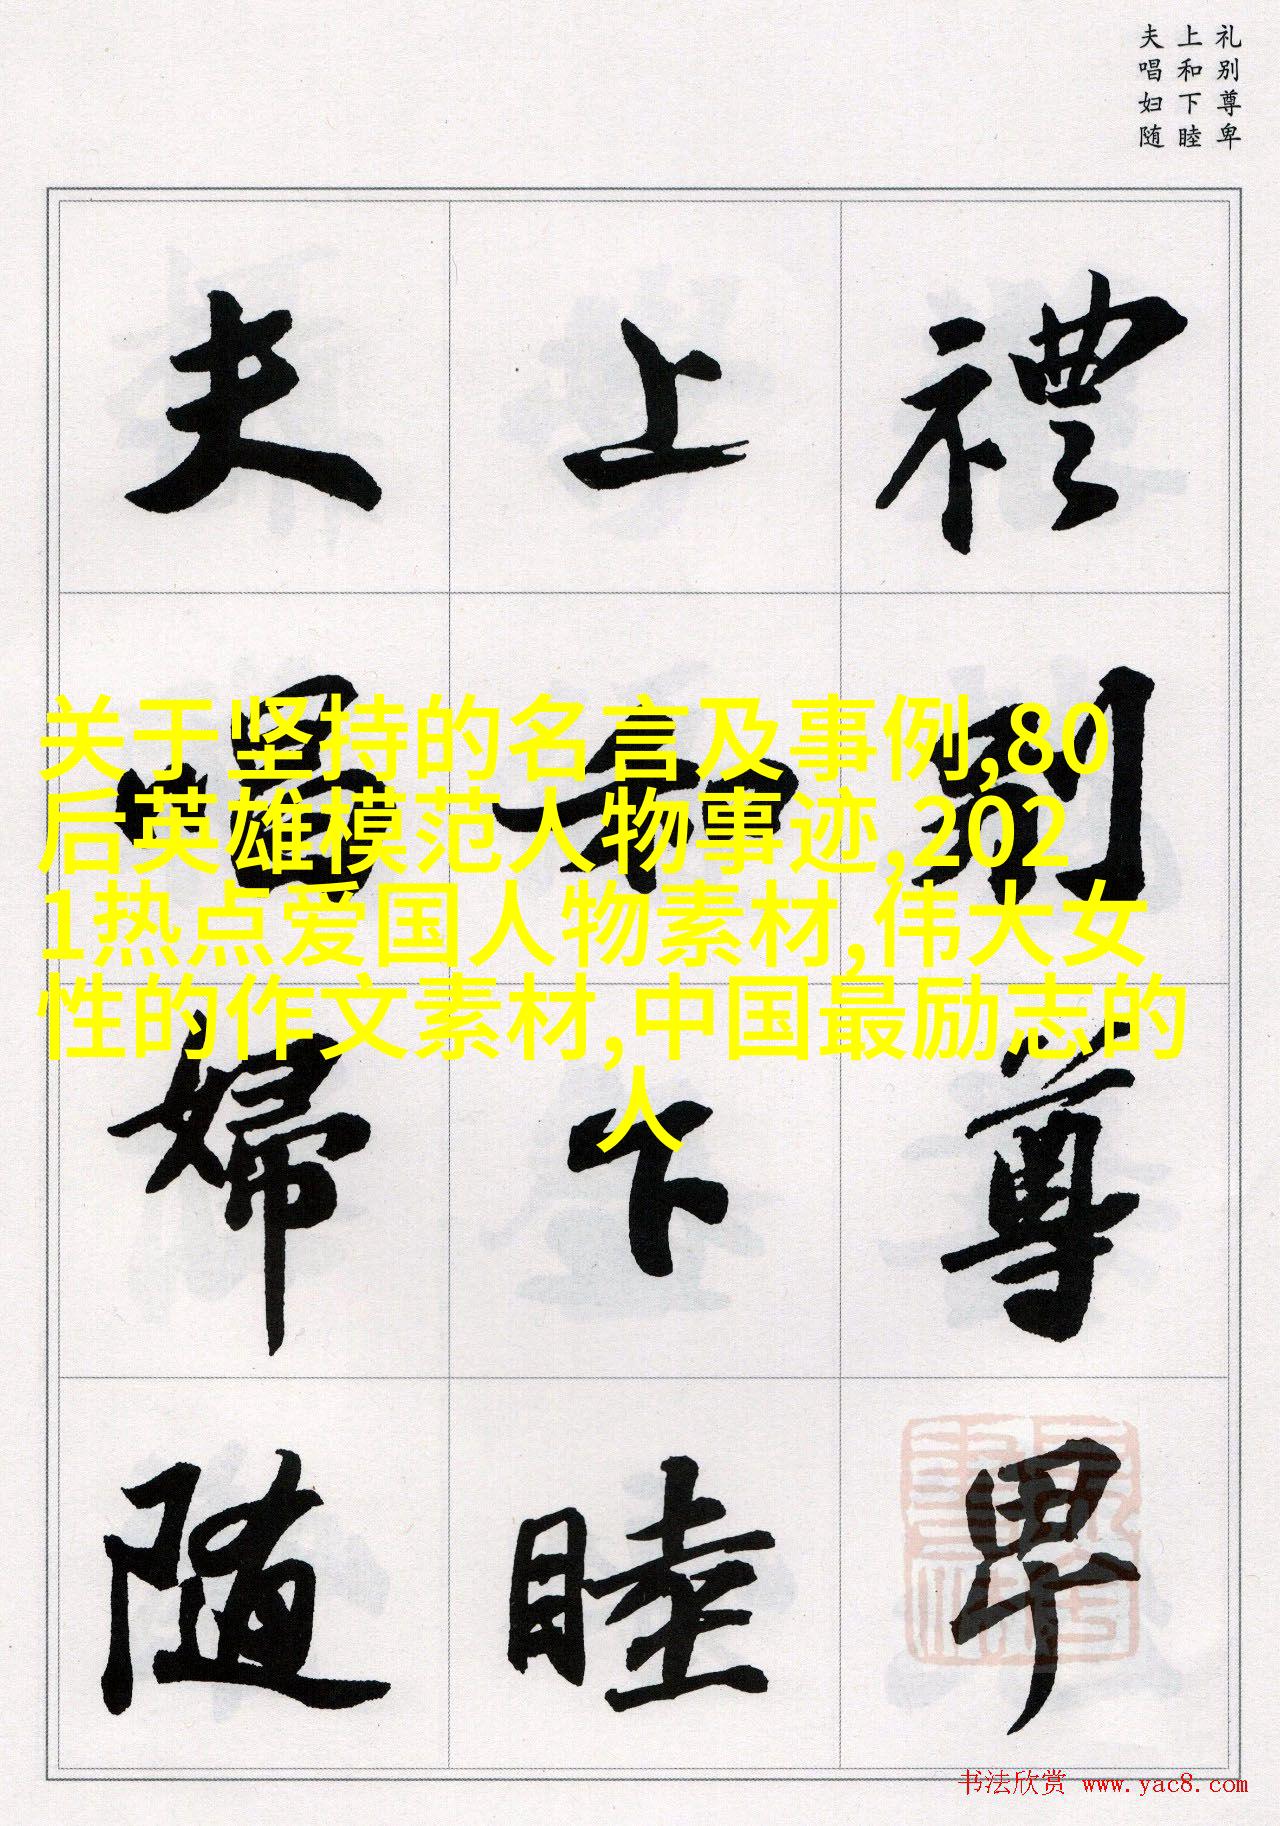 礼别尊卑
上和下睦
夫唱妇随
禮別尊卑
上和下睦
夫唱婦随
关于坚持的名言及事例,80
后英雄模范人物事迹,202
1热点爱国人物素材,伟大女
性的作文素材,中国最励志的
人
书法欣赏 www.yac8.com